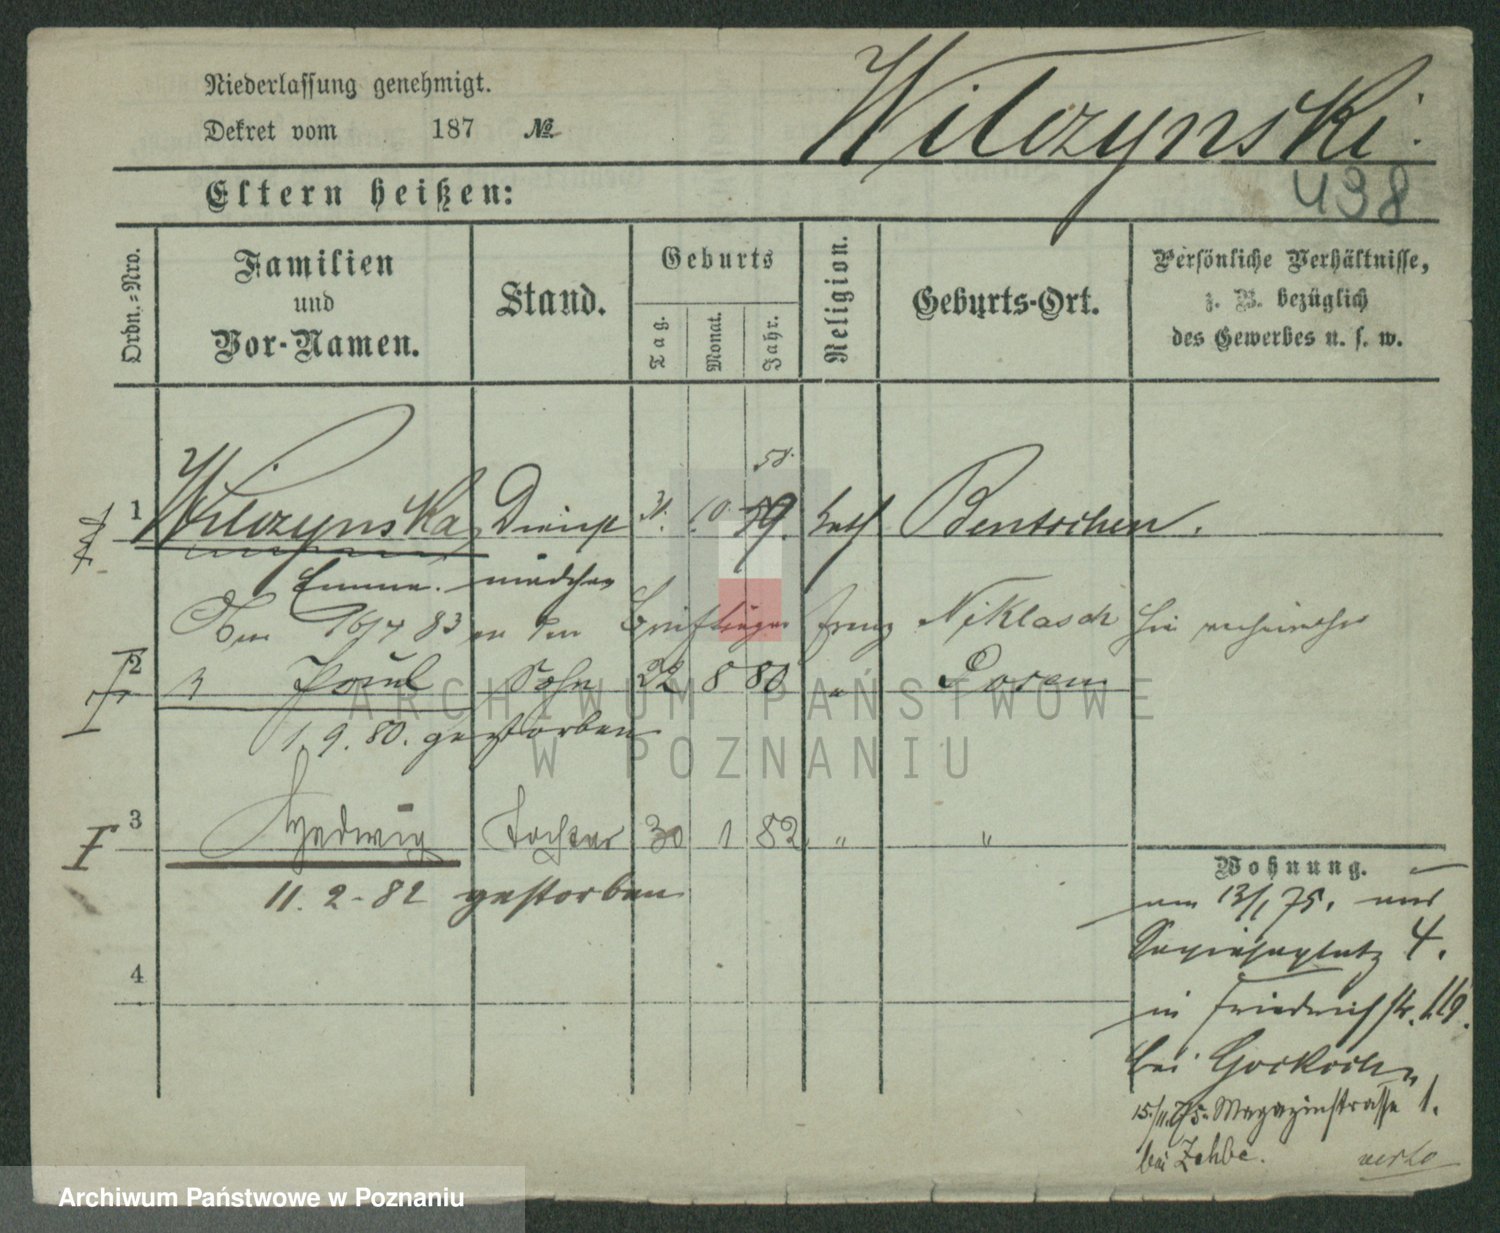 Niederlassung genehmigt.
Dekret vom 187 №
Wilczynski.
438
Eltern heißen:
Ordn.-Nro.
Familien
und
Vor-Namen.
Stand.
Geburts
Tag.
Monat.
Jahr.
Religion.
Geburts-Ort.
Persönliche Verhältnisse,
z. B. bezüglich
des Gewerbes u. s. w.
58.
1 Wilczynska Dienst 10. 59. kath Bentschen.
Emma. mädchen
Den 16/7 83 an den Briefträger Franz Niklasch hie verheirathet
2 Paul Sohn 22 8 80 " Posen
1. 9. 80. gestorben
3 Hedwig Tochter 30 1 82 " "
11. 2. 82 gestorben
4
Wohnung.
am 13/1 75. aus
Sapiehaplatz 4.
in Friedrichstr. 19.
bei
15/11.75. Magazinstrasse 1.
bei Zehbe.
ARCHIWUM PAŃSTWOWE
W POZNANIU
Archiwum Państwowe w Poznaniu